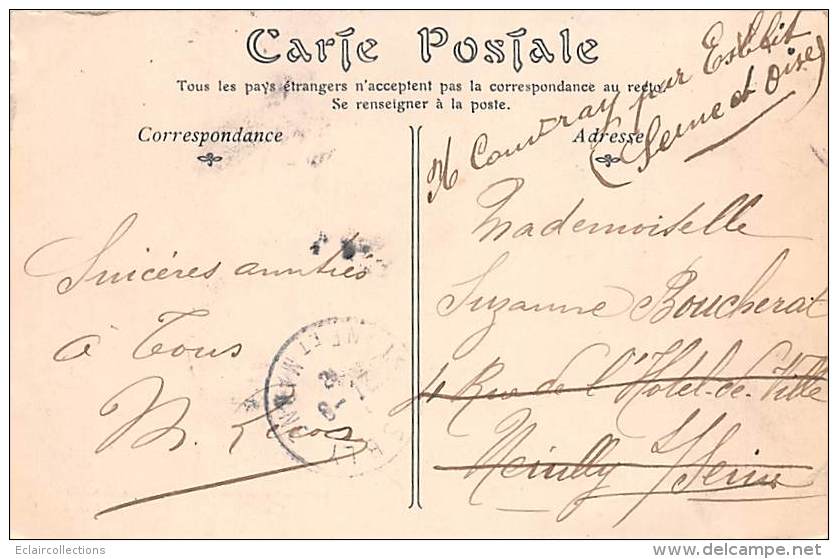 Carte Postale
Tous les pays étrangers n'acceptent pas la correspondance au recto.
Se renseigner à la poste.
Correspondance
Adresse
par Esblit
(Seine et Oise)
Sincéres amitiés
à Tous
M.
Mademoiselle
Suzanne Boucherat
4 Rue de l'Hôtel-de-Ville
Neuilly s/Seine
ET MARNE
Eclaircollections
www.delcampe.net